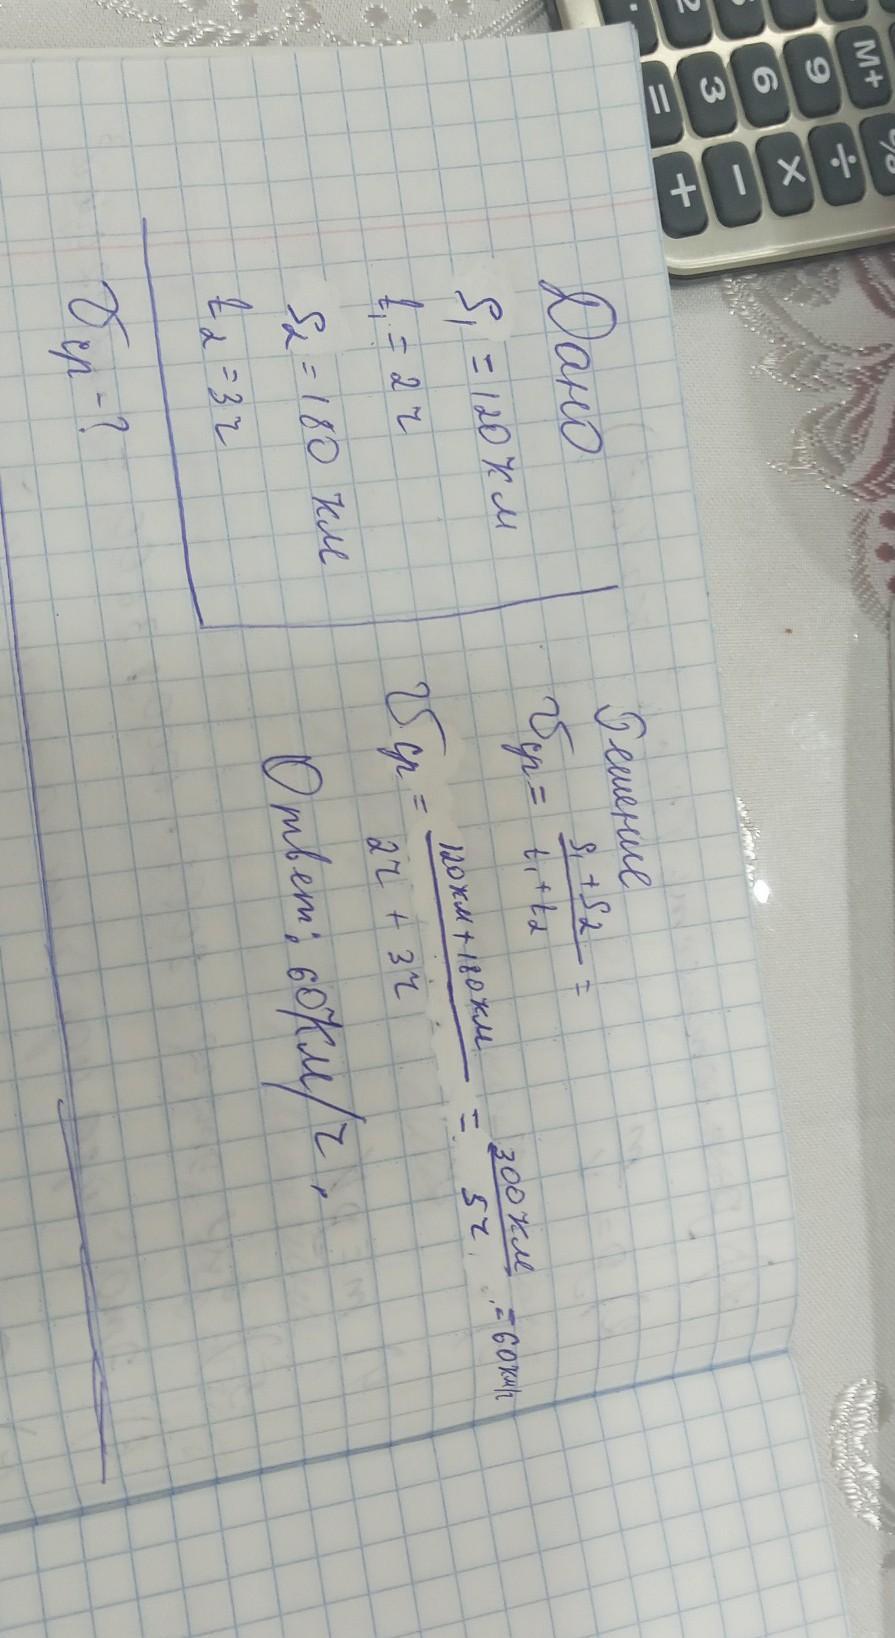 M+
9
6
3
=
÷
×
−
+
Дано
S₁ = 120 км
t₁ = 2ч
S₂ = 180 км
t₂ = 3ч
Vср - ?
Решение
Vср = (S₁ + S₂)/(t₁ + t₂) =
Vср = (120км + 180км)/(2ч + 3ч) = 300км/5ч = 60км/ч
Ответ: 60км/ч.